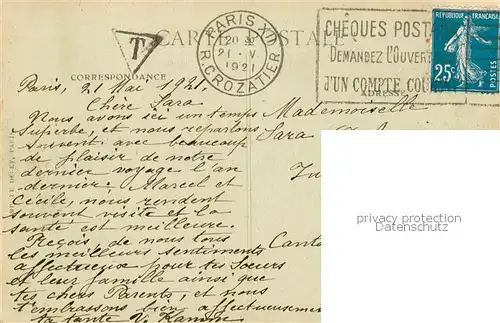 T
CARTE POSTALE
CORRESPONDANCE
PARIS XII
20
21 - V
1921
R. CROZATIER
CHÈQUES POSTA
DEMANDEZ L'OUVERT
D'UN COMPTE COU
ADRESSE
RÉPUBLIQUE FRANÇAISE
25c
POSTES
Paris, 21 Mai 1921.
Chère Sara
Nous avons ici un temps
superbe, et nous reparlons
souvent avec beaucoup
de plaisir de notre
dernier voyage l'an
dernier. Marcel et
Cécile, nous rendent
souvent visite et la
santé est meilleure.
Reçois, de nous tous
les meilleurs sentiments
affectueux pour tes Soeurs
et leur famille ainsi que
tes chers Parents, et nous
t'embrassons bien affectueusement
ta tante V.
Mademoiselle
Sara
Canto
privacy protection
Datenschutz